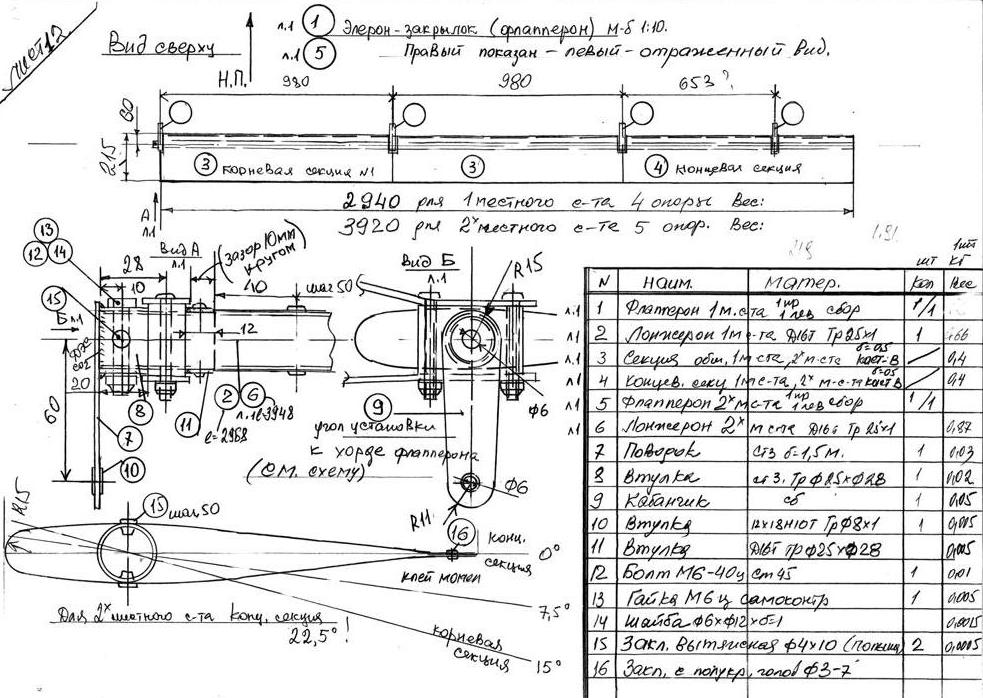 лист 12.
Вид сверху
л.1 1 Элерон-закрылок (флапперон) м-б 1:10.
л.1 5 Правый показан - левый - отраженный вид.
Н.П.
980
980
653?
60
215
3 корневая секция №1
3
4 концевая секция
А
л.1
2940 для 1местного с-та 4 опоры Вес:
3920 для 2х местного с-та 5 опор. Вес:
13
12 14
Вид А
л.1
Зазор 10мм
кругом
28
10
40
шаг 50
15
Б л.1
12
20
60
8
7
10
11
2 6
л.1 l=3948
l=2968
Вид Б
л.1
R15
Ф6
9
угол установки
к хорде флапперона
(см. схему)
Ф6
R11
R15
15 шаг 50
16
конц.
секция
0°
клей момент
7,5°
корневая
секция
15°
Для 2х местного с-та конц. секция
22,5°!
1,91.
шт 1шт кг
N наим. матер. Кол Вес
л.1 1 Флапперон 1 м.с-та 1 пр 1 лев сбор 1/1
л.1 2 Лонжерон 1м с-та Д16Т Тр 25х1 1 ,66
л.1 3 Секция общ. 1м с-та, 2х м с-та б=05 0,4
л.1 4 Концев. секц 1м с-та, 2х м-с-та б=05 0,4
л.1 5 Флапперон 2х м с-та 1 пр 1 лев сбор 1/1
л.1 6 Лонжерон 2х м с-та Д16т Тр 25х1 0,87
7 Поводок Ст3 б-1,5 м. 1 0,03
8 Втулка ст 3. Тр Ф25хФ28 1 0,02
9 Кабанчик сб 1 0,05
10 Втулка 12х18Н10Т Тр Ф8х1 1 0,005
11 Втулка Д16Т тр Ф25хФ28 0,005
12 Болт М6-40ц Ст 45 1 0,01
13 Гайка М6 ц самоконтр 1 0,005
14 Шайба Ф6хФ12хб=1 0,0015
15 Закл. вытяжная Ф4х10 2 0,0005
16 Закл. с полукр. голов Ф3-7